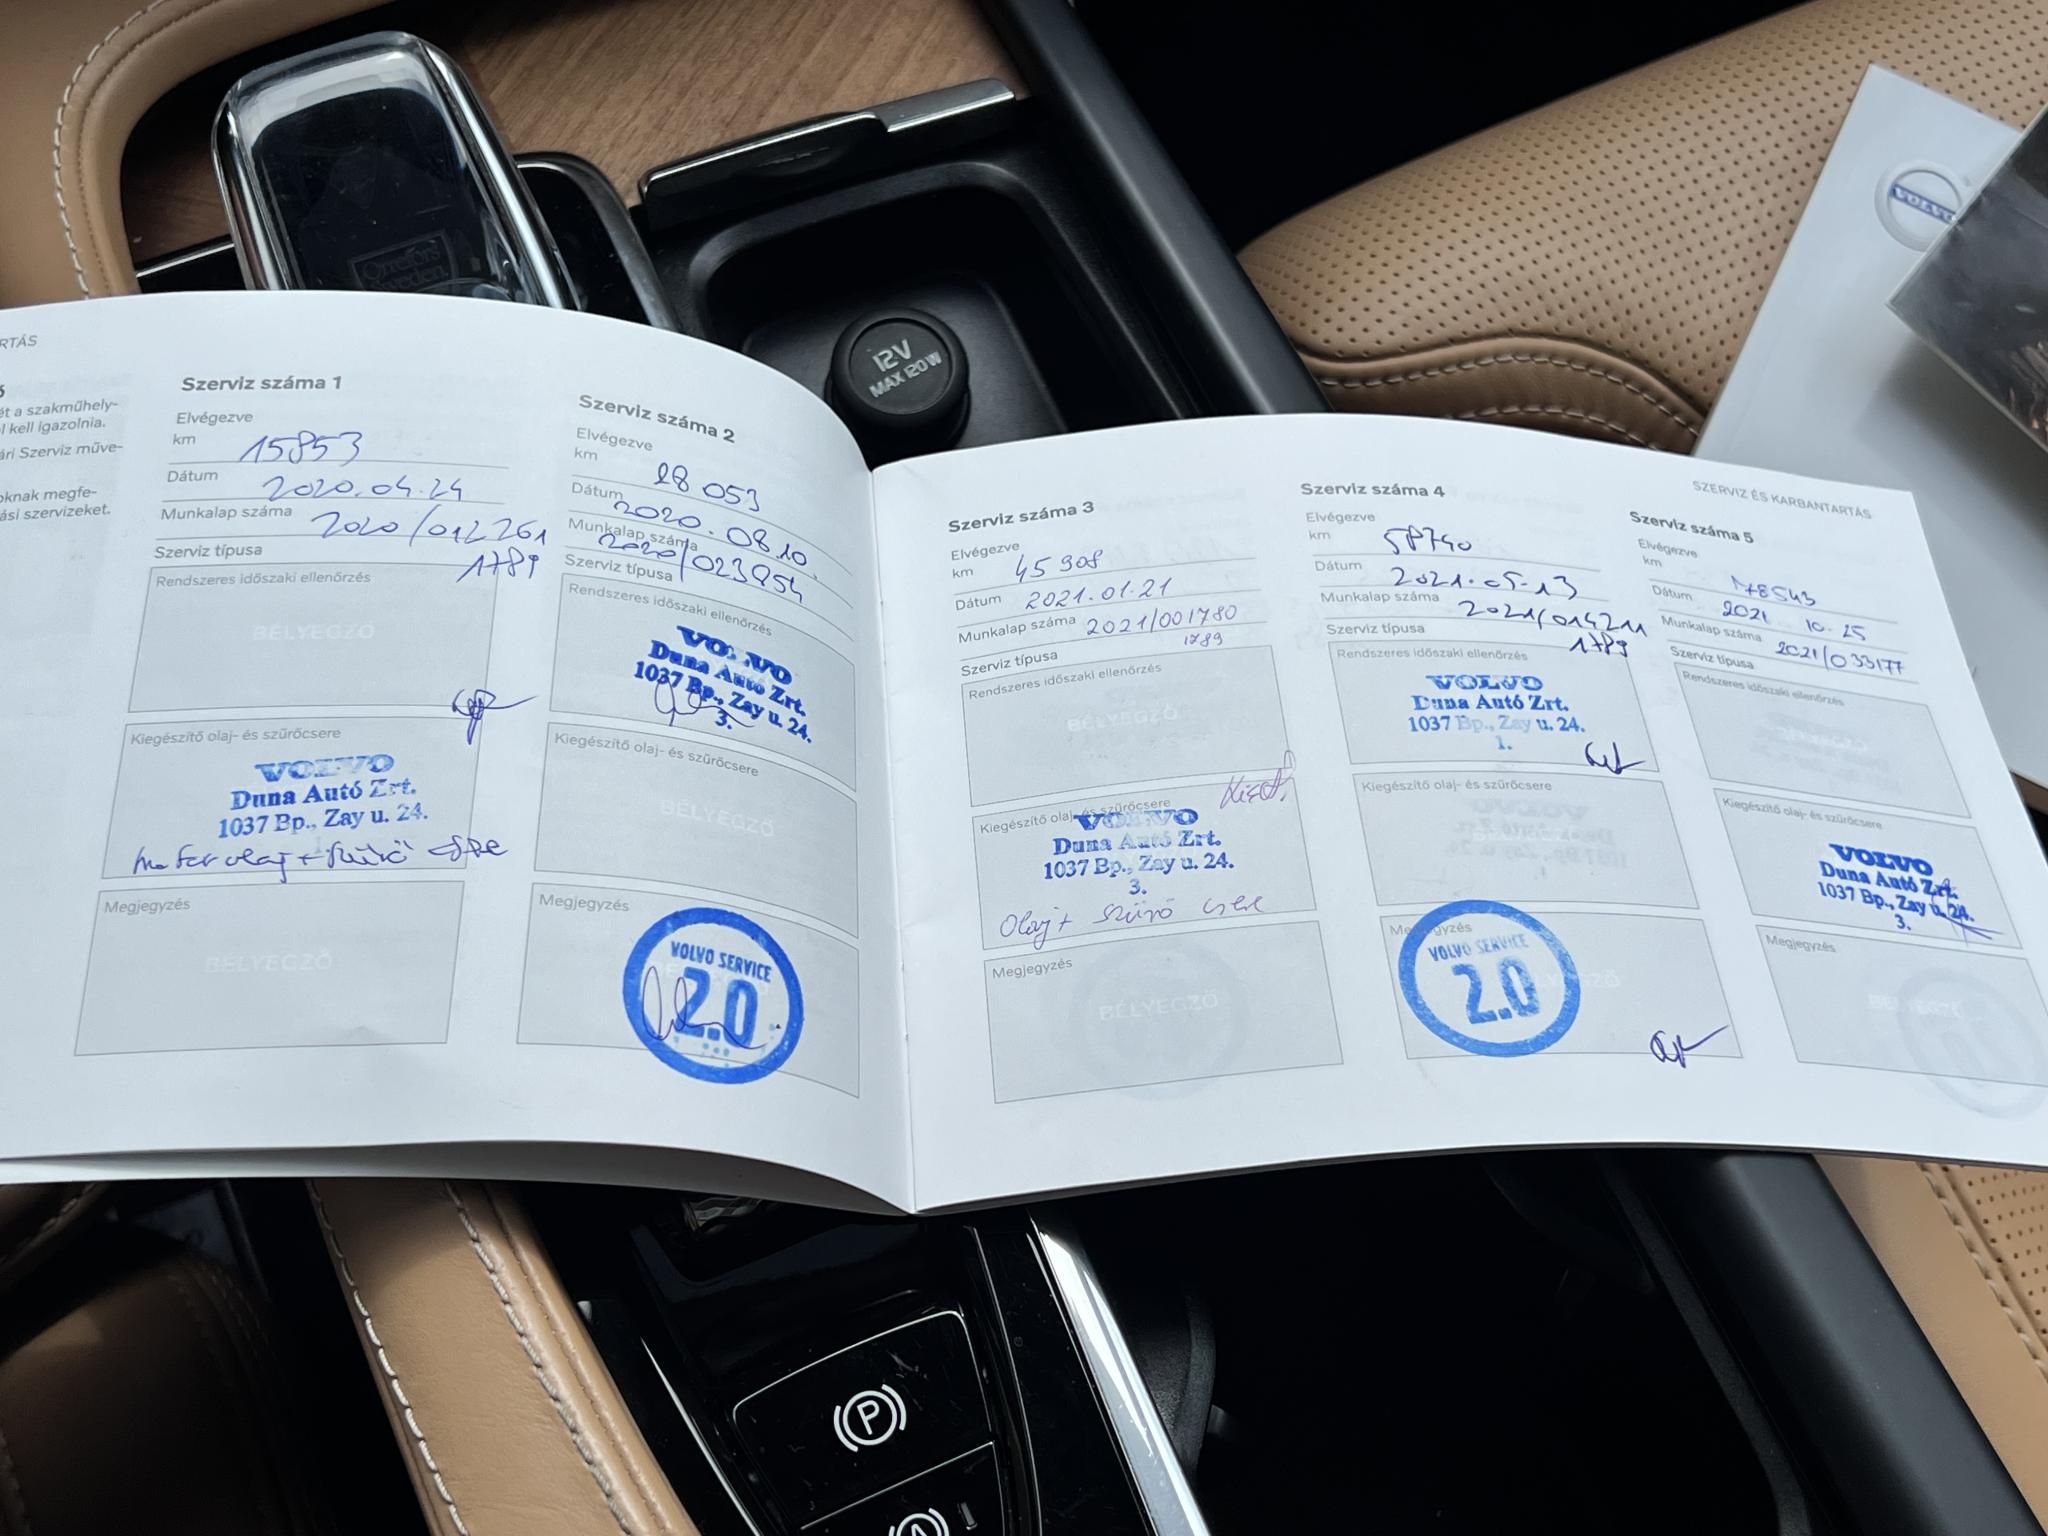 Orrefors
Sweden
12V
MAX 120W
VOLVO
RTÁS
ét a szakműhely-
l kell igazolnia.
ári Szerviz műve-
oknak megfe-
ási szervizeket.
Szerviz száma 1
Elvégezve
km 15853
Dátum 2020.04.24
Munkalap száma 2020/012261
Szerviz típusa 1789
Rendszeres időszaki ellenőrzés
BÉLYEGZŐ
Kiegészítő olaj- és szűrőcsere
VOLVO
Duna Autó Zrt.
1037 Bp., Zay u. 24.
motorolaj + szűrő csere
Megjegyzés
BÉLYEGZŐ
Szerviz száma 2
Elvégezve
km 28 053
Dátum 2020.08.10.
Munkalap száma 2020/023954
Szerviz típusa
Rendszeres időszaki ellenőrzés
VOLVO
Duna Autó Zrt.
1037 Bp., Zay u. 24.
3.
Kiegészítő olaj- és szűrőcsere
BÉLYEGZŐ
Megjegyzés
VOLVO SERVICE
2.0
SZERVIZ ÉS KARBANTARTÁS
Szerviz száma 3
Elvégezve
km 45 908
Dátum 2021.01.21
Munkalap száma 2021/001780
1789
Szerviz típusa
Rendszeres időszaki ellenőrzés
BÉLYEGZŐ
Kiegészítő olaj- és szűrőcsere
VOLVO
Duna Autó Zrt.
1037 Bp., Zay u. 24.
3.
Olaj + szűrő csere
Megjegyzés
BÉLYEGZŐ
Szerviz száma 4
Elvégezve
km 58740
Dátum 2021.05.13
Munkalap száma 2021/014211
Szerviz típusa 1789
Rendszeres időszaki ellenőrzés
VOLVO
Duna Autó Zrt.
1037 Bp., Zay u. 24.
1.
Kiegészítő olaj- és szűrőcsere
Megjegyzés
VOLVO SERVICE
2.0
Szerviz száma 5
Elvégezve
km 78543
Dátum 2021 10.25
Munkalap száma 2021/033177
Szerviz típusa
Rendszeres időszaki ellenőrzés
Kiegészítő olaj- és szűrőcsere
VOLVO
Duna Autó Zrt.
1037 Bp., Zay u. 24.
3.
Megjegyzés
BÉLYEGZŐ
P
A